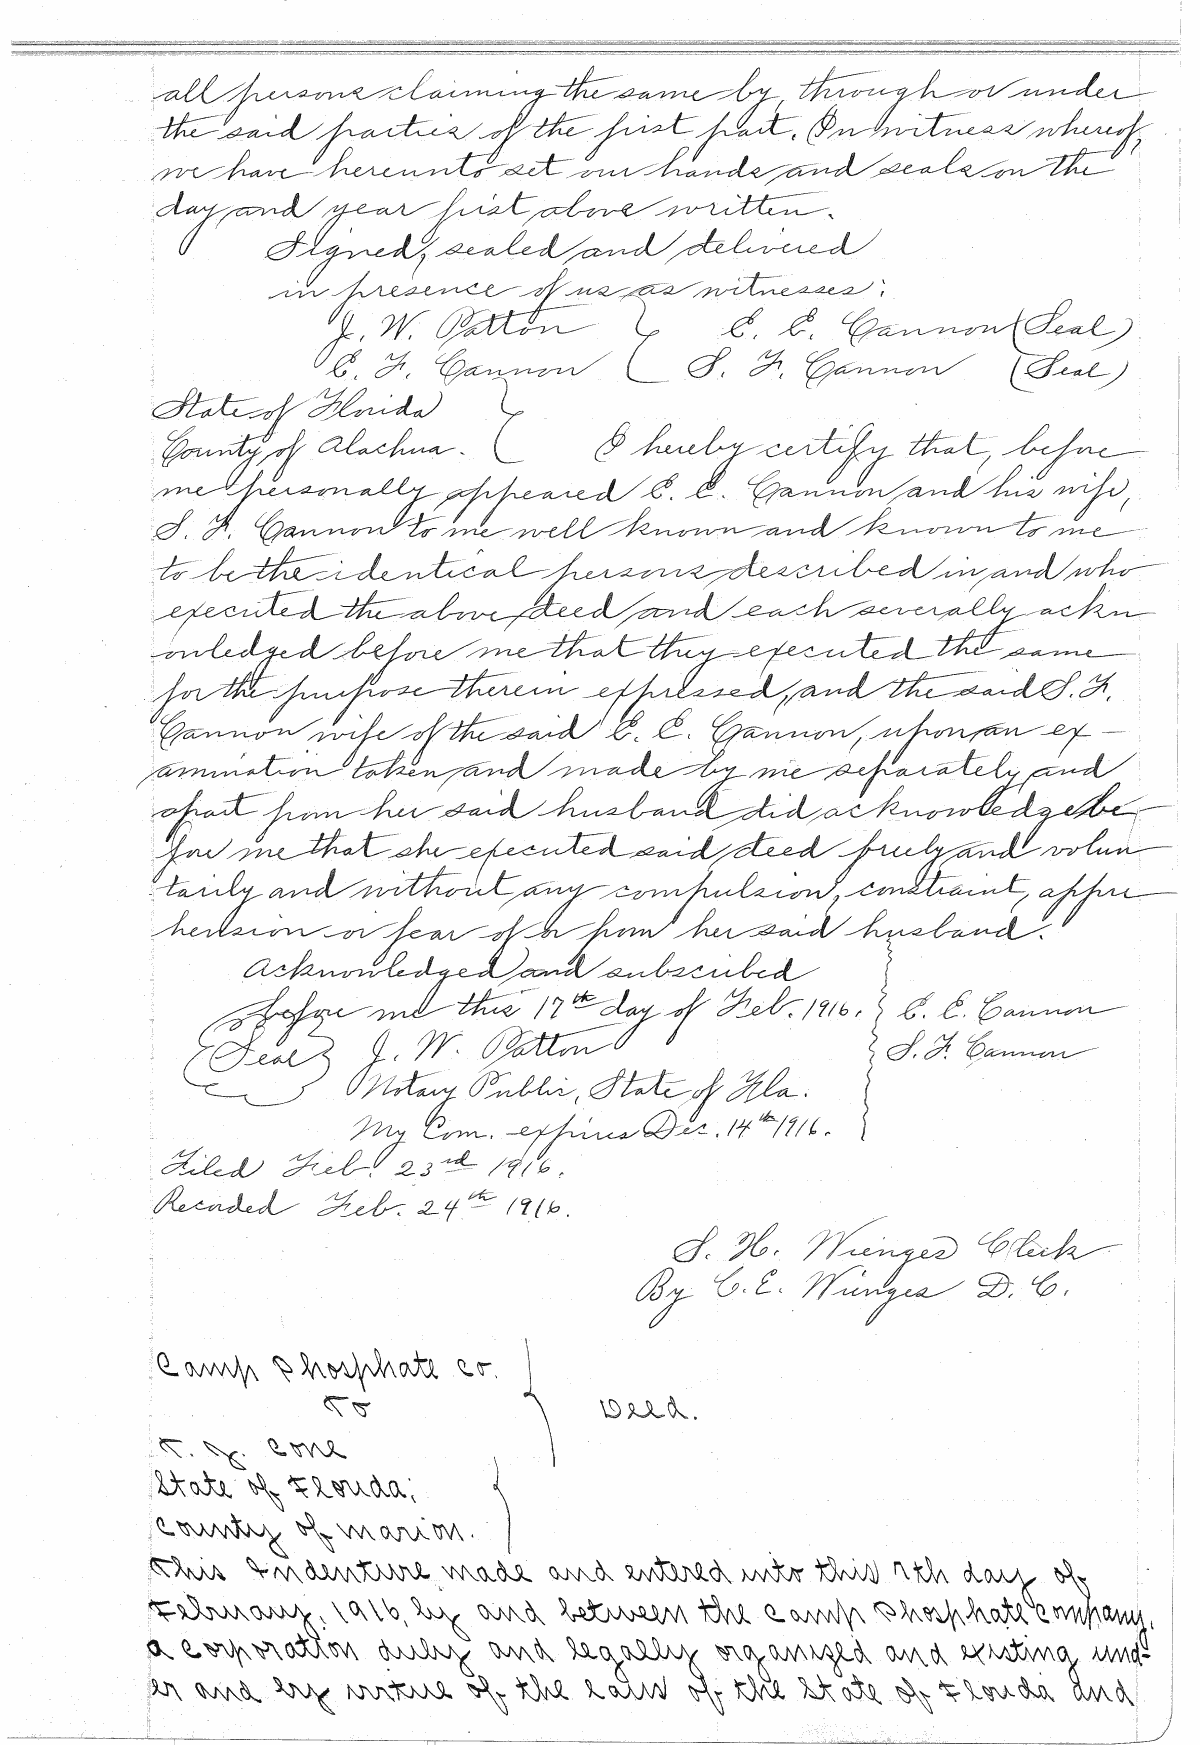 all persons claiming the same by, through or under
the said parties of the first part. In witness whereof,
we have hereunto set our hands and seals on the
day and year first above written.
Signed, sealed and delivered
in presence of us as witnesses:
J. W. Patton E. E. Cannon (Seal)
E. F. Cannon S. F. Cannon (Seal)
State of Florida
County of Alachua. I hereby certify that, before
me personally appeared E. E. Cannon and his wife,
S. F. Cannon to me well known and known to me
to be the identical persons described in and who
executed the above deed and each severally ackn
owledged before me that they executed the same
for the purpose therein expressed, and the said S. F.
Cannon wife of the said E. E. Cannon, upon an ex-
amination taken and made by me separately and
apart from her said husband did acknowledge be
fore me that she executed said deed freely and volun
tarily and without any compulsion, constraint, appre
hension or fear of or from her said husband.
Acknowledged and subscribed
before me this 17th day of Feb. 1916. E. E. Cannon
(Seal) J. W. Patton S. F. Cannon
Notary Public, State of Fla.
My Com. expires Dec. 14th 1916.
Filed Feb. 23rd 1916.
Recorded Feb. 24th 1916.
S. H. Wienges Clerk
By C. E. Wienges D. C.
Camp Phosphate Co.
To Deed.
T. J. Cone
State of Florida;
County of Marion.
This Indenture made and entered into this 7th day of
February, 1916, by and between the Camp Phosphate Company,
a corporation duly and legally organized and existing und-
er and by virtue of the laws of the State of Florida and